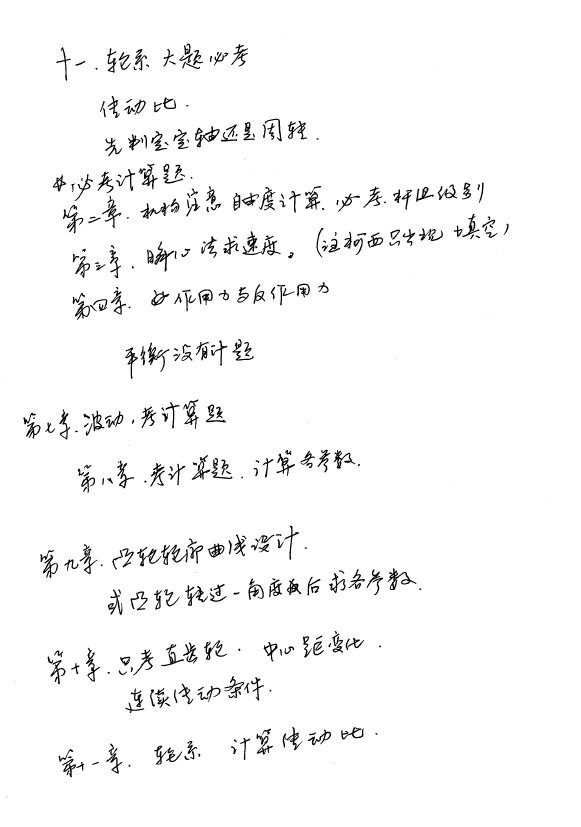 十一.轮系 大题必考
传动比.
先判定定轴还是周转.
必考计算题.
第二章.机构注意自由度计算.必考.杆组级别
第三章.瞬心法求速度。(
第四章.作用力与反作用力
平衡没有计题
第七章.波动,考计算题
第八章.考计算题.计算各参数.
第九章.凸轮轮廓曲线设计.
或凸轮转过一角度后求各参数.
第十章.只考直齿轮.中心距变化.
连续传动条件.
第十一章.轮系 计算传动比.